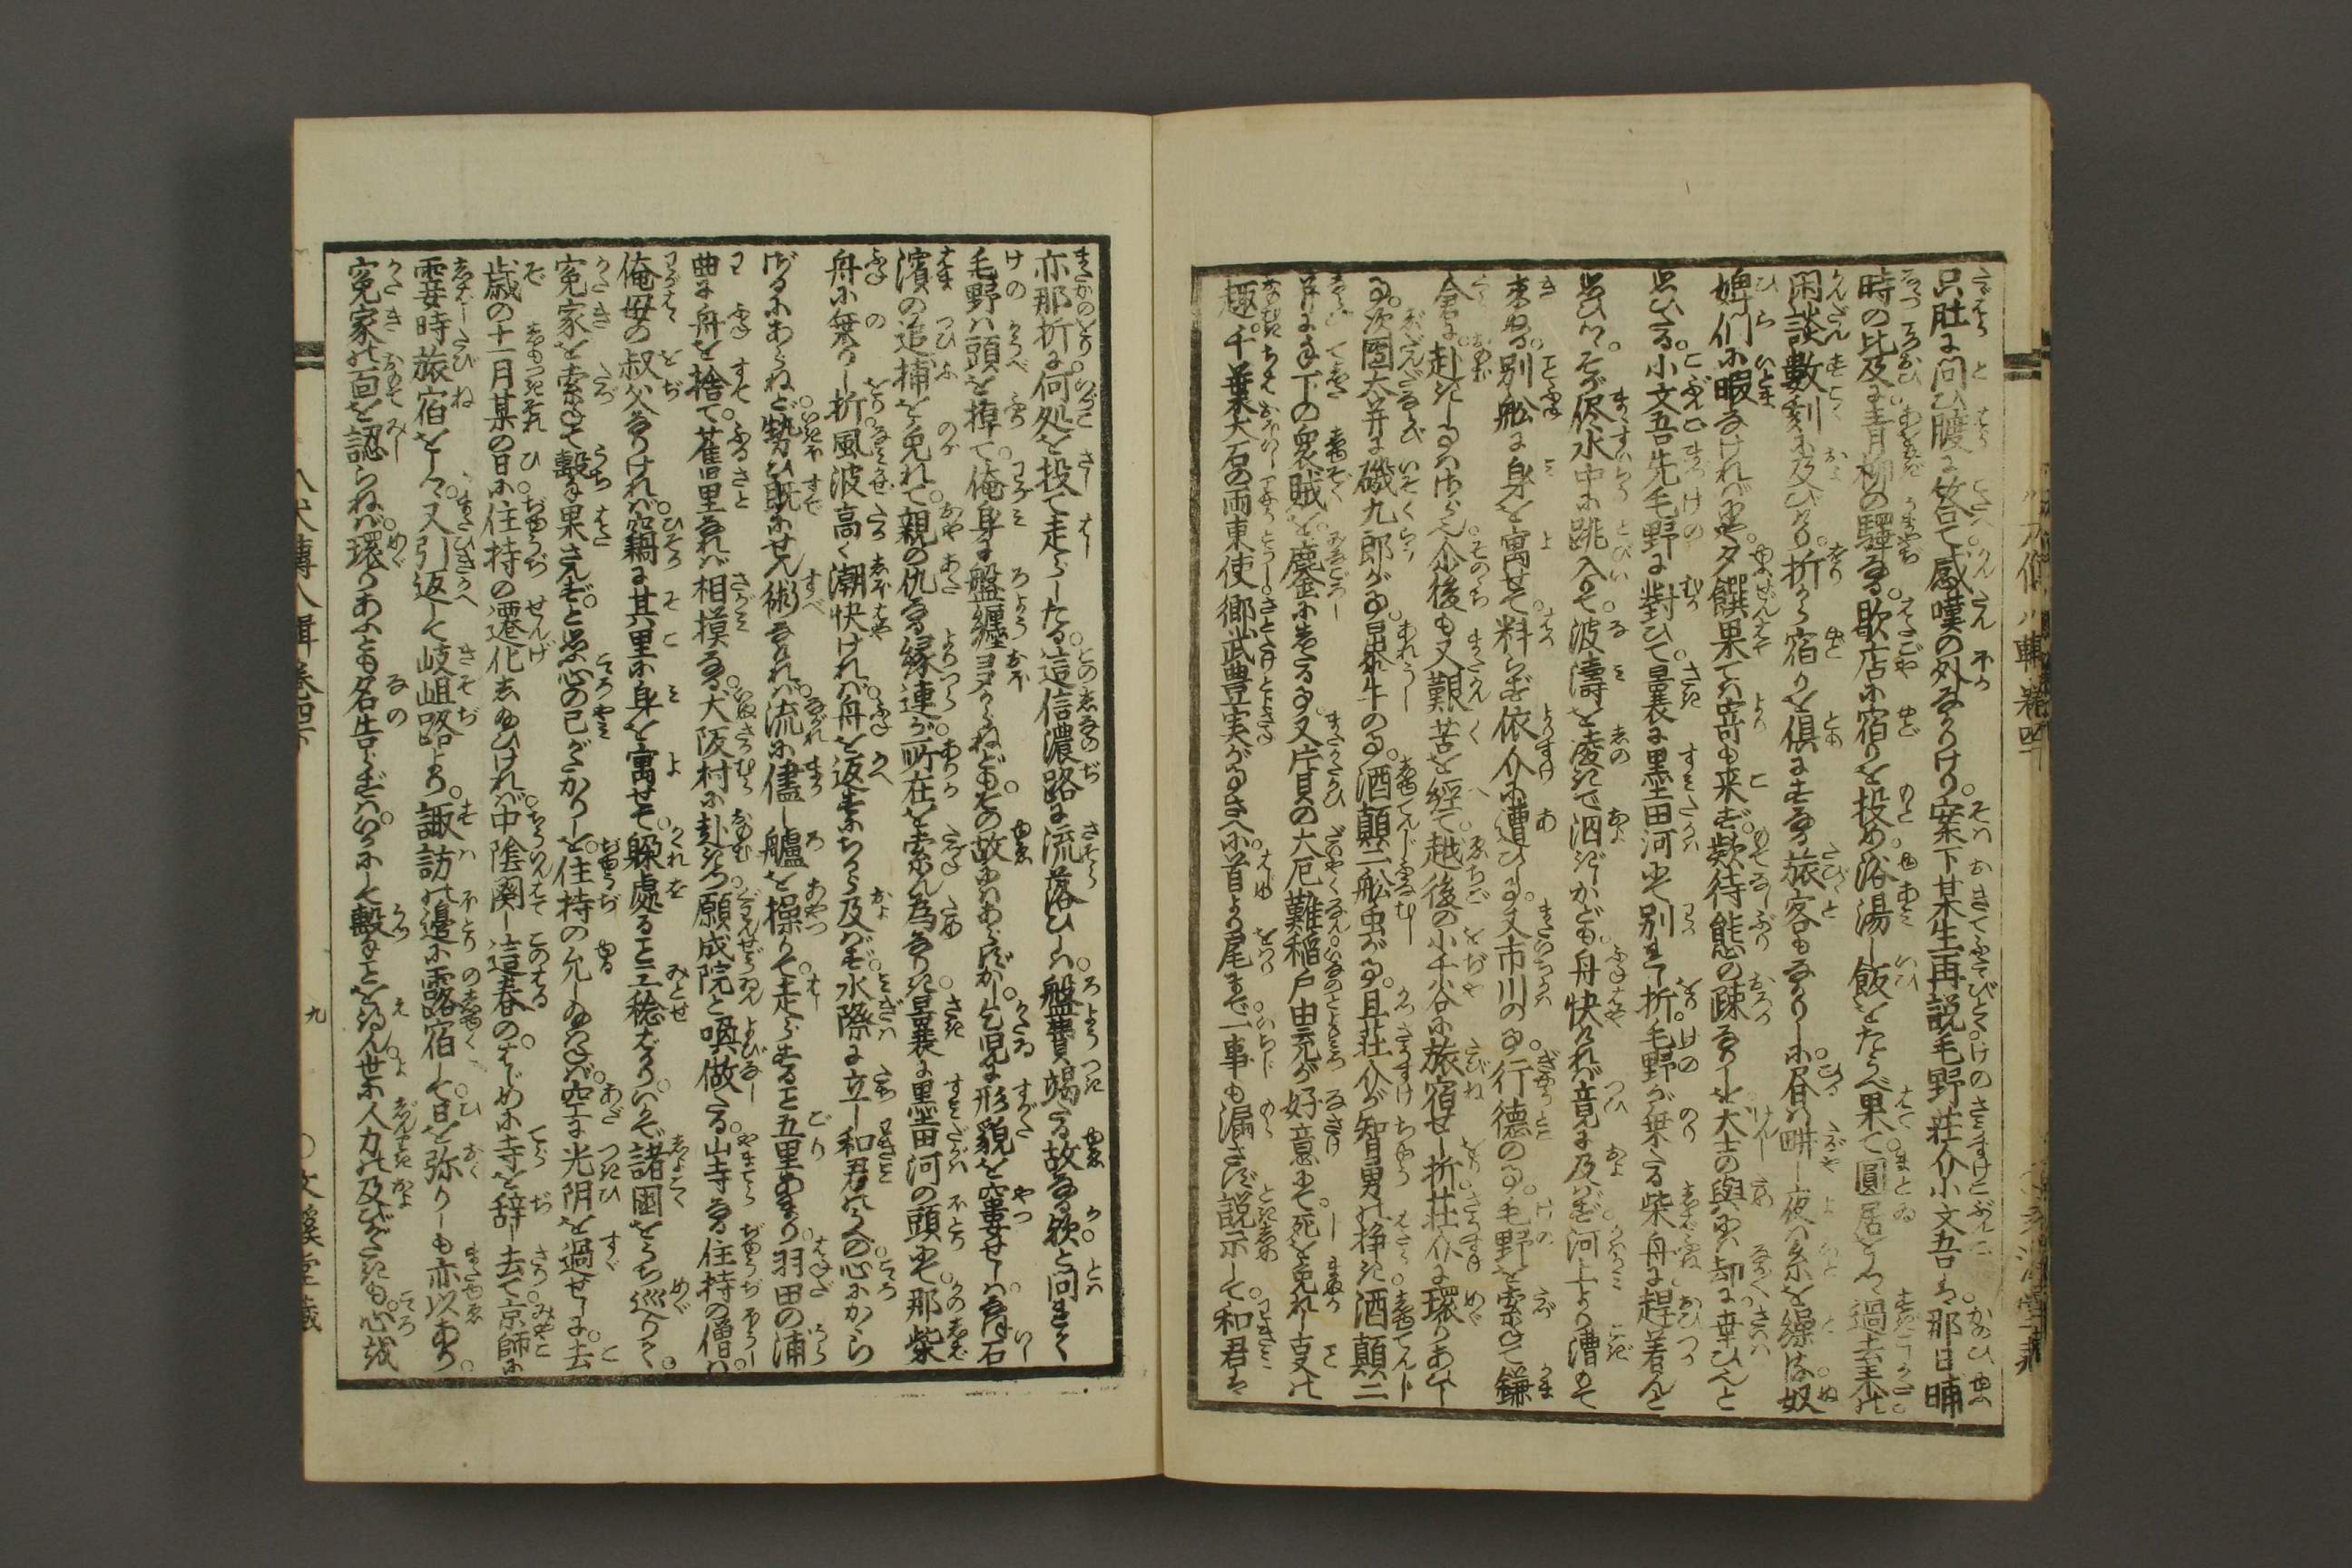 只肚に問ひ腹に答て感嘆の外なかりけり。案下某生再説毛野荘介小文吾は。那日晡
時の比及に青柳の驛なる歇店に宿りを投め。浴湯し飯をたうべ果て。圓居をしつゝ過去来の
閑談數刻に及びけり。折から宿りを倶にする旅客もなかりしに。昼は畊し夜は糸を繰る奴
婢們に暇なければにや。夕饌果ては竒も来ず。欵待態の疎なりしを犬士の與には却に幸ひと
思ひける。小文吾先毛野に對ひて。曩裏に墨田河にて別れし折。毛野が乗たる柴舟に趕着んと
思ひつゝ。そが侭水中に跳入りて。波濤を凌ぎて泅げども舟快ければ竟に及ばず。河上より漕もて
来ぬる。別舩に身を寓せて。料らず依介に遭ひし事。又市川の事。行徳の事。毛野を索ねて鎌
倉に。赴きしかひはなく。尓後も又艱苦を經て。越後の小千谷に旅宿せし折。荘介に環りあひし
事。次團太并に礒九郎が事。暴牛の事。酒顛二舩虫が事。且荘介が智勇の挣き。酒顛二
們手下の衆賊を鏖にしたる事。又片貝の大厄難稲戸由充が好意にて。死を免れし言の
趣。千葉大石の両東使。郷武豊実が事さへに。首より尾まで一事も漏さず説示して。和君は
亦那折に何処を投て走らしたる。這信濃路に流落ひしは。盤費竭たる故なる歟と問れて
毛野は頭を掉て。俺身に盤纏ヨタからねども。その故にはあらずかし。乞児に形貌を窶せしは。石
濱の追捕を免れて。親の仇なる縁連が所在を索ん為なりき。曩裏に墨田河の頭にて。那柴
舟に乗りし折。風波高く潮快ければ。舟を返すにちから及ばず。水際に立し和君のうへの心にかゝら
ざるにあらねど。勢ひ既にせん術なければ。流に儘し艫を操りて。走らすること五里あまり。羽田の浦
曲に舟を捨て。舊里なれば相摸なる。犬阪村に赴きつ。願成院と喚做たる。山寺なる住持の僧は。
俺母の叔父なりければ。竊に其里に身を寓せて。躱處ること三稔ばかり。いかで諸國をうち巡りて。
寃家を索ねて撃も果さんず。と思ふ心の已がたかりしを。住持の允し給はねば。空に光阴を過せしに。去
歳の十一月某の日に。住持の遷化し給ひければ。中陰闋し。這春のはじめに寺を辞し去て。京師に
霎時旅宿をしつ。又引返して岐岨路より。諏訪の邊に露宿して。日を弥りしも亦以あり。
寃家の面を認らねば。環りあふとも名告らずは。いかにして撃ことを得ん。世に人力の及びがたきも。心誠
八犬傳八輯巻四下
九
○文溪堂藏